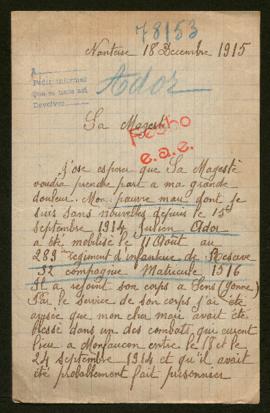 78153
Nanterre 18 Decembre 1915
A
Pedir informes
Devolver
Ador
Sa Magesté
Fecho
e.a.e.
j'ose esperer que Sa Magesté
voudra prendre part a ma grande
douleur. Mon pauvre mari dont je
suis sans nouvelles depuis le 15
Septembre 1914 Julien Ador
a été mobilisé le 11 Août au
289 regiment d'infanterie de Reserve
32 compagnie Matricule 1516
Il a rejoint son corps a Sens (Yonne)
Par le service de son corps j'ai été
avisée que mon cher mari avait été
blessé dans un des combats, qui eurent
lieu a Monfaucon entre le 18 et le
24 septembre 1914 et qu'il avait
été probablement fait prisonnier